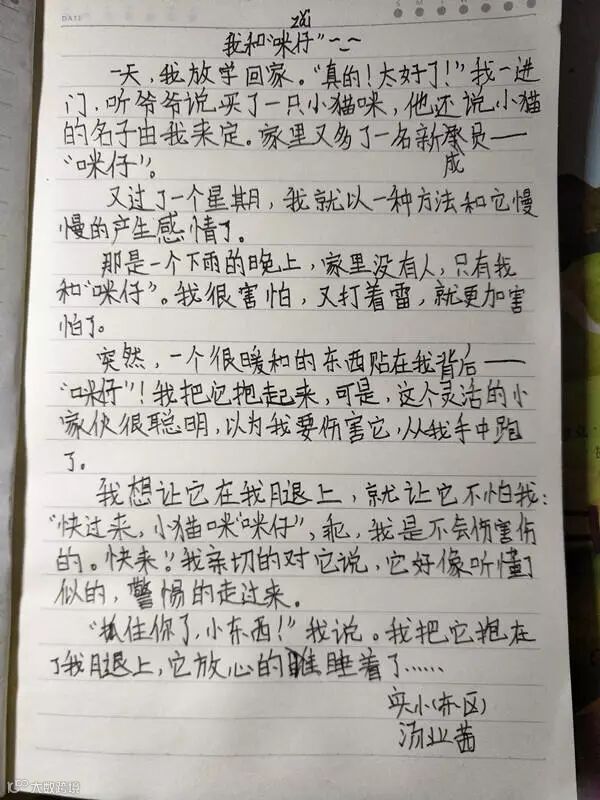 DATE
我和"咪仔"~~
一天,我放学回家。"真的!太好了!"我一进
门,听爷爷说买了一只小猫咪,他还说小猫
的名子由我来定。家里又多了一名新成员——
"咪仔"。
又过了一个星期,我就以一种方法和它慢
慢的产生感情了。
那是一个下雨的晚上,家里没有人,只有我
和"咪仔"。我很害怕,又打着雷,就更加害
怕了。
突然,一个很暖和的东西贴在我背后——
"咪仔"!我把它抱起来,可是,这个灵活的小
家伙很聪明,以为我要伤害它,从我手中跑
了。
我想让它在我腿上,就让它不怕我:
"快过来,小猫咪"咪仔",乖,我是不会伤害伤
的。快来!"我亲切的对它说,它好像听懂了
似的,警惕的走过来。
"抓住你了,小东西!"我说。我把它抱在
了我腿上,它放心的睡着了……
实小(东区)
汤业茜
大数跨境